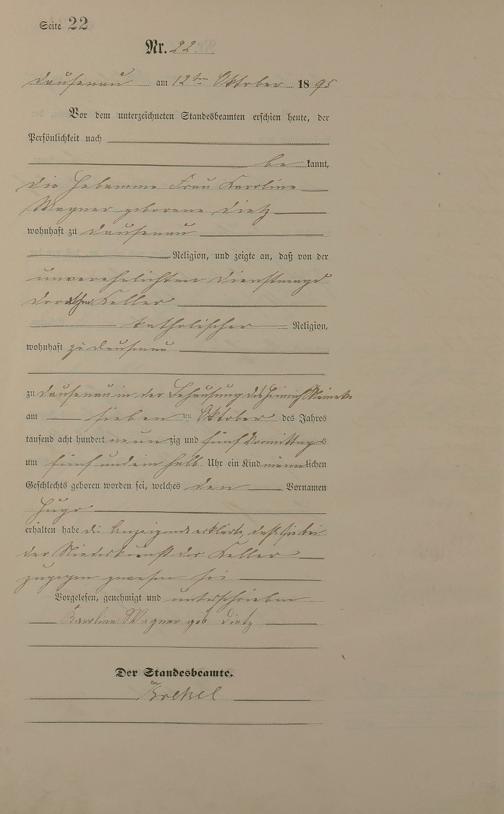 Seite 22
Nr. 22
Dausenau am 12ten Oktober 1895
Vor dem unterzeichneten Standesbeamten erschien heute, der
Persönlichkeit nach
be kannt,
die Hebamme Frau Karoline
Wagner geborene Dietz
wohnhaft zu Dausenau
Religion, und zeigte an, daß von der
unverehelichten Dienstmagd
Keller
katholischer Religion,
wohnhaft zu Dausenau
zu Dausenau in der Behausung des Heinrich
am sieben ten Oktober des Jahres
tausend acht hundert neun zig und fünf Vormittags
um fünf und ein halb Uhr ein Kind männlichen
Geschlechts geboren worden sei, welches den Vornamen
Hugo
erhalten habe die Anzeigende erklärte, daß sie bei
der Niederkunft der Keller
zugegen gewesen sei
Vorgelesen, genehmigt und unterschrieben
Karoline Wagner geb Dietz
Der Standesbeamte.